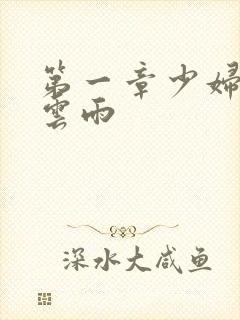 第一章少婦
雲雨
深水大咸鱼